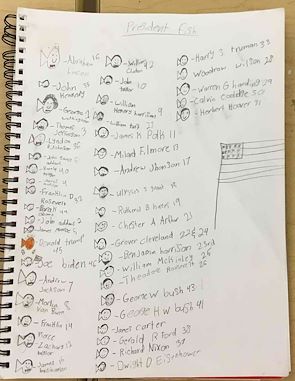 President Fish
-Abraham 16
Lincoln
-John 35
Kennedy
-George 1
-Thomas 3
Jefferson
-Lyndon 36
-Franklin D 32
Roosevelt
-John adams 2
-Donald trump
45
-Joe biden 46
-Andrew 7
Jackson
-Martin 8
Van Buren
-Franklin 14
Pierce
-Zachary 12
taylor
-James 15
42
Clinton
-John 10
-William
Henry harrison 9
-James K Polk 11
-Milard Filmore 13
-Andrew Jhonson 17
-Ulysses S grant 18
-Rutherford B hayes 19
-Chester A Arthur 21
-Grover Cleveland 22 & 24
-Benjamin harrison 23rd
-William McKinley 25
-Theodore Roosevelt 26
-George W bush 43
-George H W bush 41
-James carter
-Gerald R Ford 38
-Richard Nixon 37
-Dwight D Eisenhower
-Harry S truman 33
Woodrow wilson 28
-Warren G harding 29
-Calvin Coolidge 30
-Herbert Hoover 31